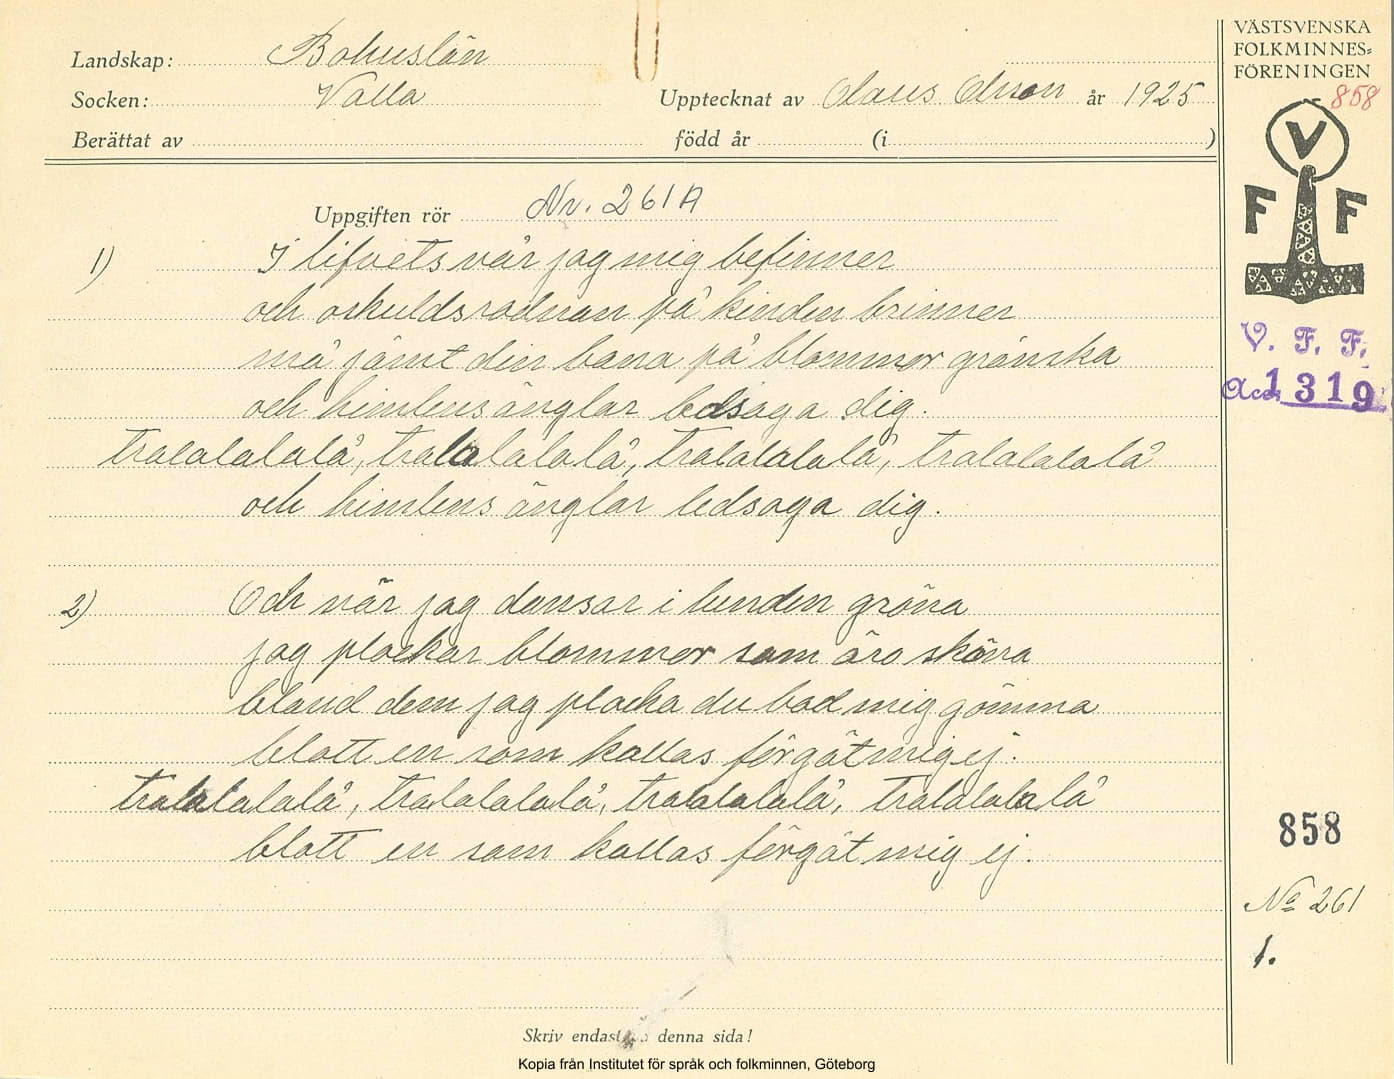 Landskap: Bohuslän
Socken: Valla
Upptecknat av Claus Olsson år 1925
Berättat av
född år (i )
VÄSTSVENSKA
FOLKMINNES=
FÖRENINGEN
858
V
F F
V. F. F.
Acc. 1319
Uppgiften rör Nr. 261A
1) I lifvets vår jag mig befinner
och oskuldsrodnan på kinden brinner
må jämt din bana på blommor grönska
och himlens änglar ledsaga dig.
tralalalalá, tralalalalá, tralalalalá, tralalalalá
och himlens änglar ledsaga dig.
2) Och när jag dansar i lunden gröna
jag plockar blommor som äro sköna
bland dem jag plocka du bad mig gömma
blott en som kallas förgätmigej.
tralalalalá, tralalalalá, tralalalalá, tralalalalá
blott en som kallas förgät mig ej.
858
No 261
1.
Skriv endast på denna sida!
Kopia från Institutet för språk och folkminnen, Göteborg